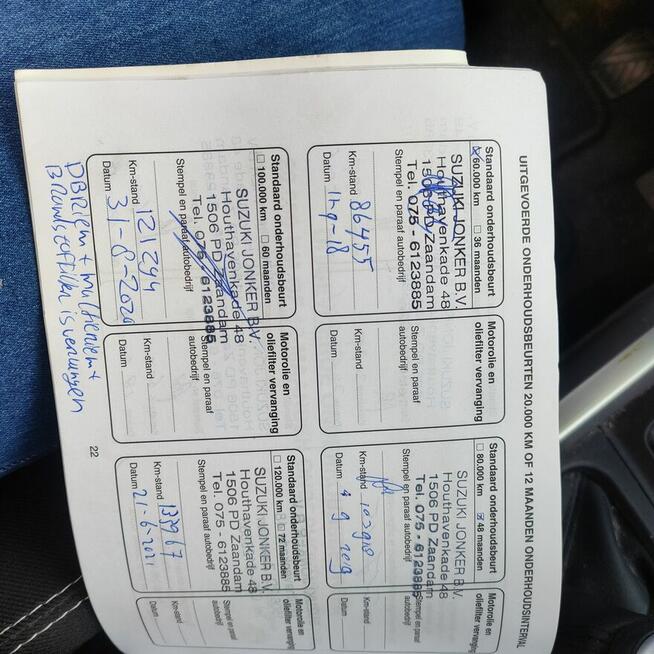 UITGEVOERDE ONDERHOUDSBEURTEN 20.000 KM OF 12 MAANDEN ONDERHOUDSINTERVAL
Standaard onderhoudsbeurt
60.000 km 36 maanden
SUZUKI JONKER B.V.
Houthavenkade 48
1506 PD Zaandam
Tel. 075 - 6123885
Stempel en paraaf autobedrijf
Km-stand 86455
Datum 11-9-18
Motorolie en
oliefilter vervanging
Stempel en paraaf
autobedrijf
Km-stand
Datum
Standaard onderhoudsbeurt
80.000 km 48 maanden
SUZUKI JONKER B.V.
Houthavenkade 48
1506 PD Zaandam
Tel. 075 - 6123885
Stempel en paraaf autobedrijf
Km-stand 102918
Datum 4 9 2019
Motorolie en
oliefilter vervanging
Stempel en paraaf
autobedrijf
Km-stand
Datum
Standaard onderhoudsbeurt
100.000 km 60 maanden
SUZUKI JONKER B.V.
Houthavenkade 48
1506 PD Zaandam
Tel. 075 - 6123885
Stempel en paraaf autobedrijf
Km-stand 121294
Datum 31-8-2020
Motorolie en
oliefilter vervanging
Stempel en paraaf
autobedrijf
Km-stand
Datum
Standaard onderhoudsbeurt
120.000 km 72 maanden
SUZUKI JONKER B.V.
Houthavenkade 48
1506 PD Zaandam
Tel. 075 - 6123885
Stempel en paraaf autobedrijf
Km-stand 133967
Datum 21-6-2021
Motorolie en
oliefilter vervanging
Stempel en paraaf
autobedrijf
Km-stand
Datum
DBRiem + multiriem +
Brandstoffilter is vervangen
22